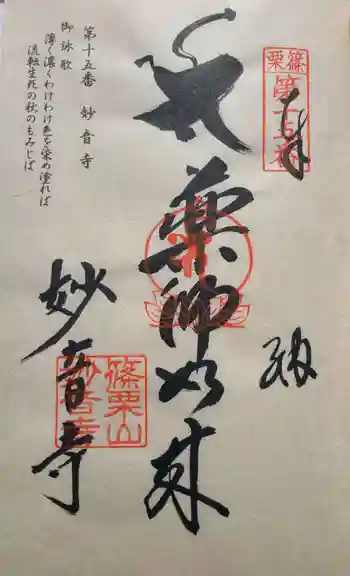 奉納
篠栗
第十五番
薬師如来
妙音寺
篠栗山
妙音寺
第十五番 妙音寺
御詠歌
薄く濃くわけわけ色を染め塗れば
流転生死の秋のもみじば